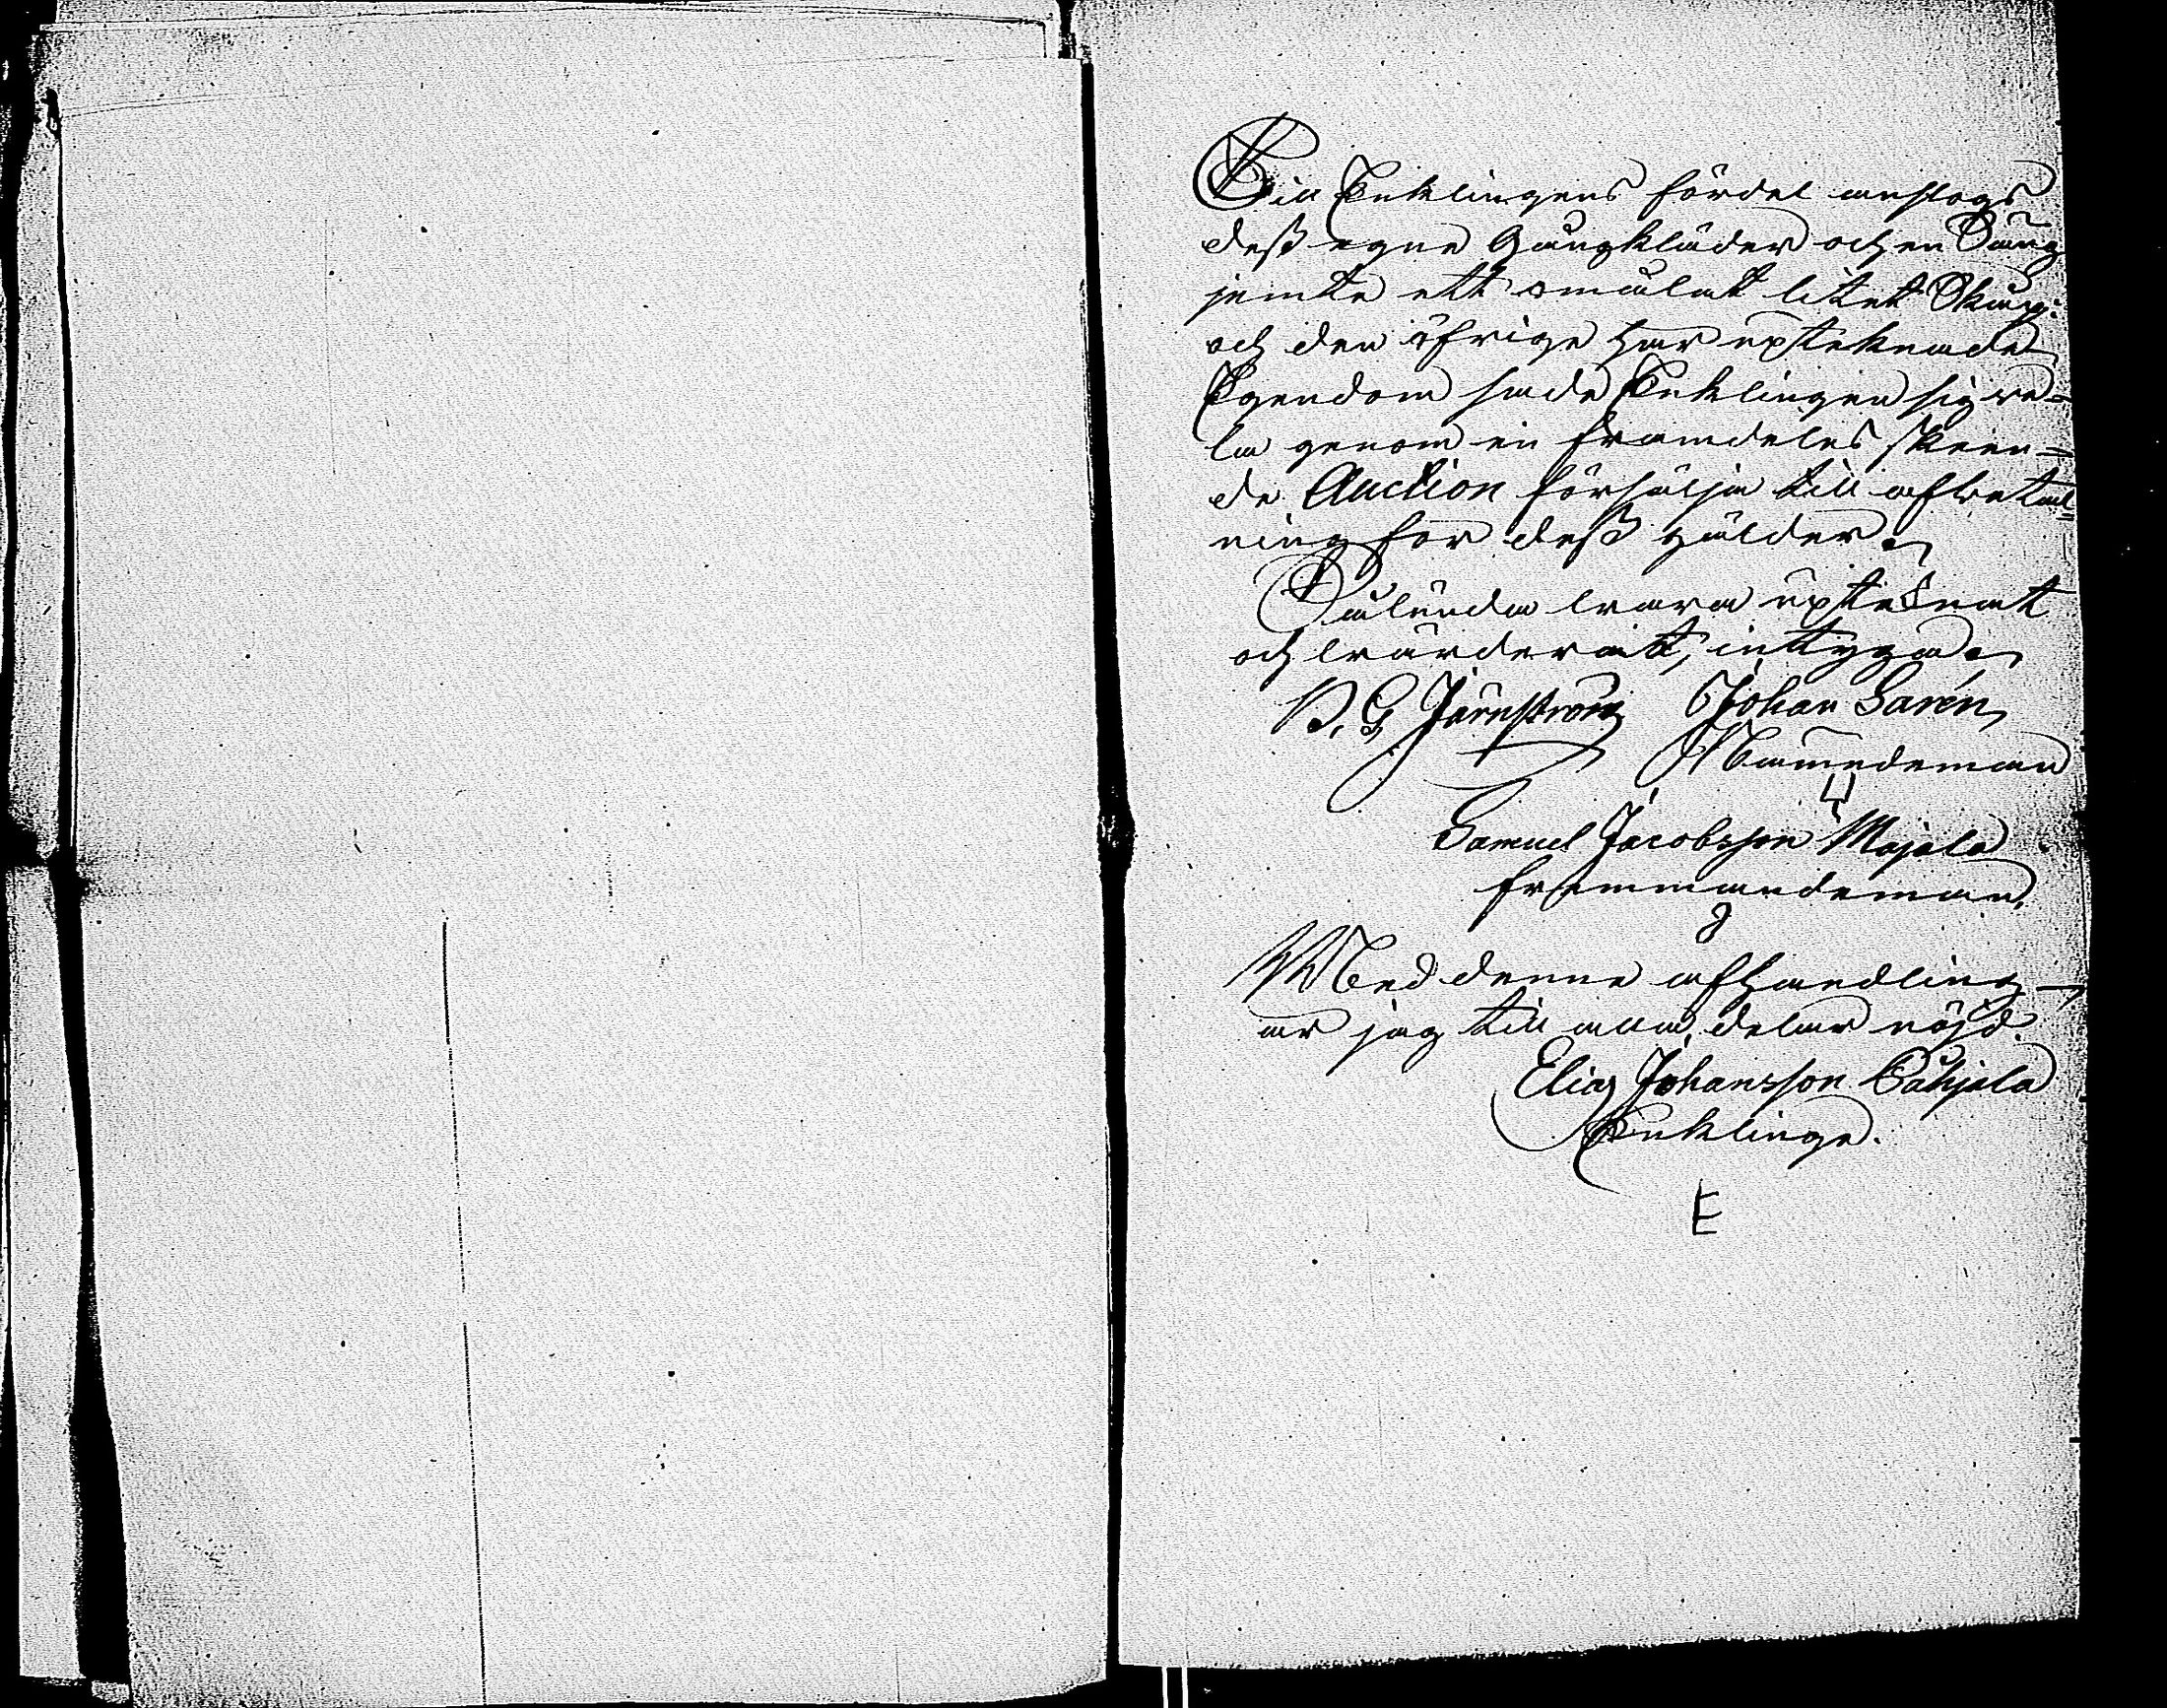 Till Enklingens fördel anslogs
dess egne Gångkläder och en Säng
jemte ett omålat litet Skåp:
och den öfrige här uptecknade
Egendom sade Enklingen sig we-
la genom en framdeles skeen=
de Auction försälja till afbetal=
ning för dess gälder.
Sålunda wara uptecknat
och wärderat, intyga.
B. G. Järnström Johan Sarén
Nämndeman
Samuel Jacobsson Majala
fremmandeman.
Med denne afhandling
är jag till alla delar nöjd.
Elias Johansson Påhjala
Enklinge.
E